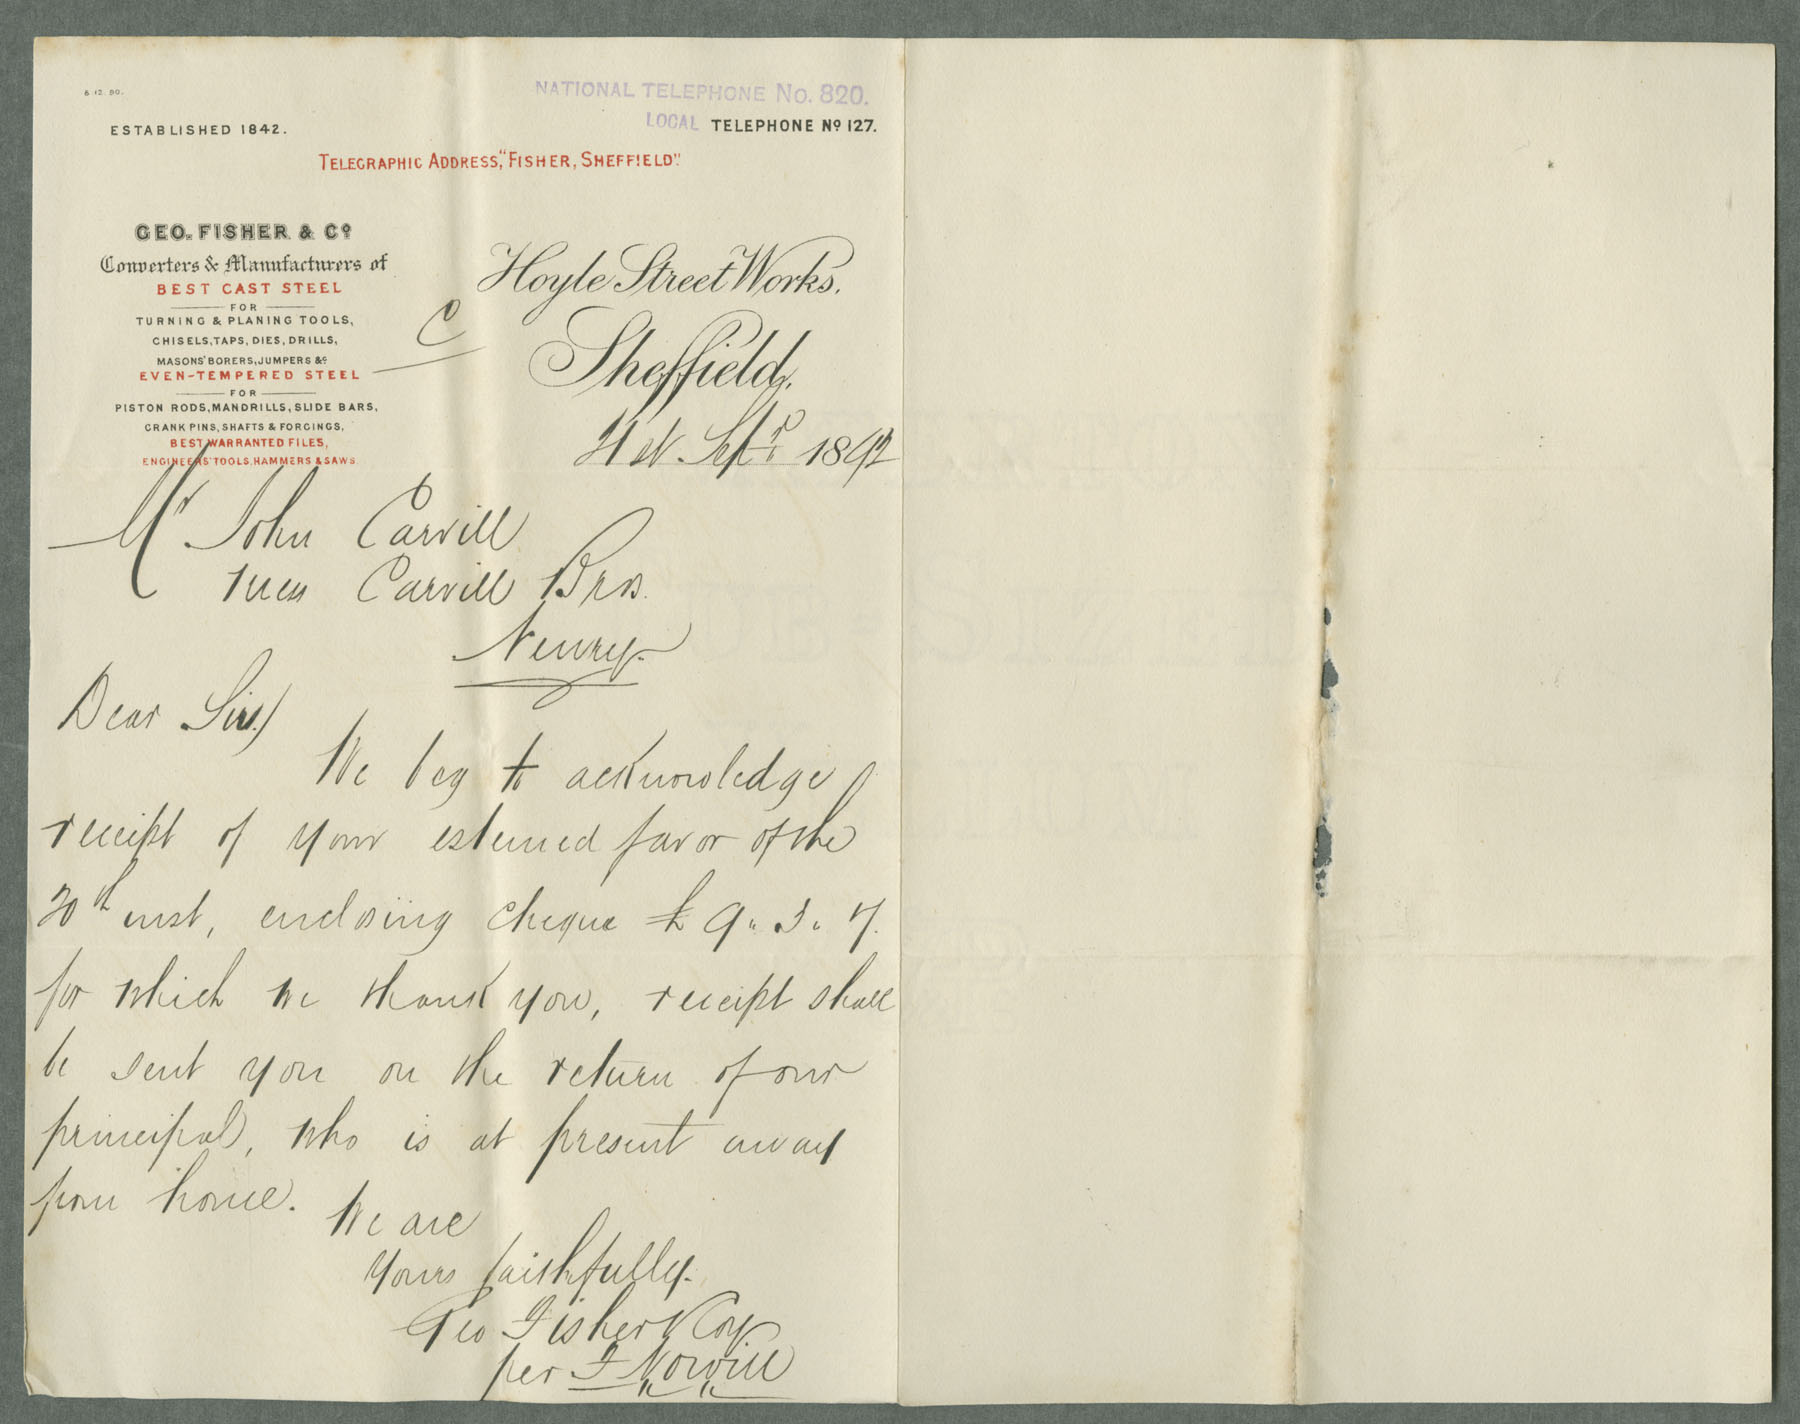 6.12.90.
NATIONAL TELEPHONE No. 820.
ESTABLISHED 1842.
LOCAL TELEPHONE No 127.
TELEGRAPHIC ADDRESS, "FISHER, SHEFFIELD".
GEO. FISHER & Co
Converters & Manufacturers of
BEST CAST STEEL
FOR
TURNING & PLANING TOOLS,
CHISELS, TAPS, DIES, DRILLS,
MASONS' BORERS, JUMPERS &c
EVEN-TEMPERED STEEL
FOR
PISTON RODS, MANDRILLS, SLIDE BARS,
CRANK PINS, SHAFTS & FORGINGS,
BEST WARRANTED FILES,
ENGINEERS' TOOLS, HAMMERS & SAWS.
C
Hoyle Street Works.
Sheffield,
Septr 1892
Mr John Carvill
Mess Carvill Bros.
Newry.
Dear Sirs)
We beg to acknowledge
receipt of your esteemed favor of the
20th inst, enclosing cheque £9.3.7.
for which we thank you, receipt shall
be sent you on the return of our
principal, who is at present away
from home.
We are
Yours faithfully.
Geo Fisher & Coy
per F Nowill